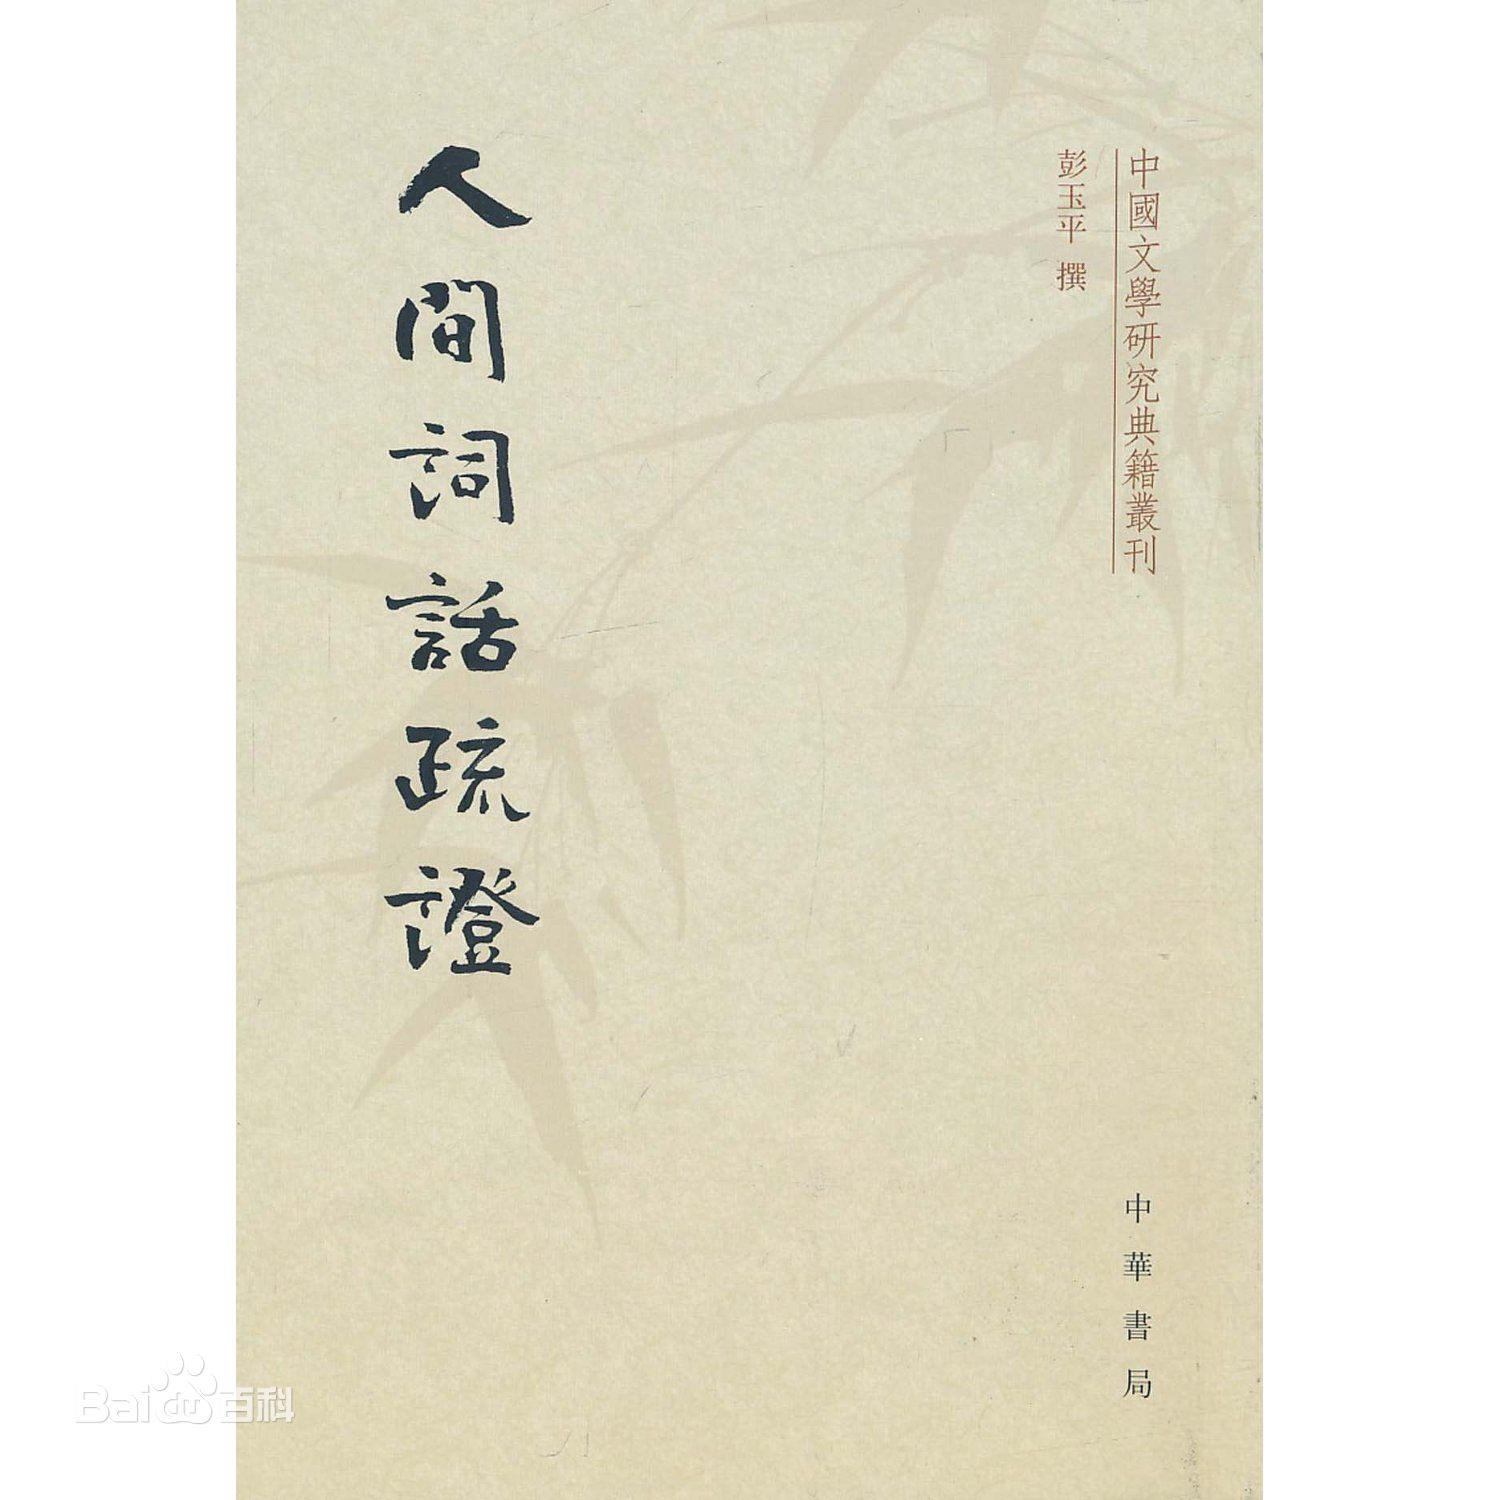 中國文學研究典籍叢刊
彭玉平 撰
人間詞話疏證
中華書局
Bai百科